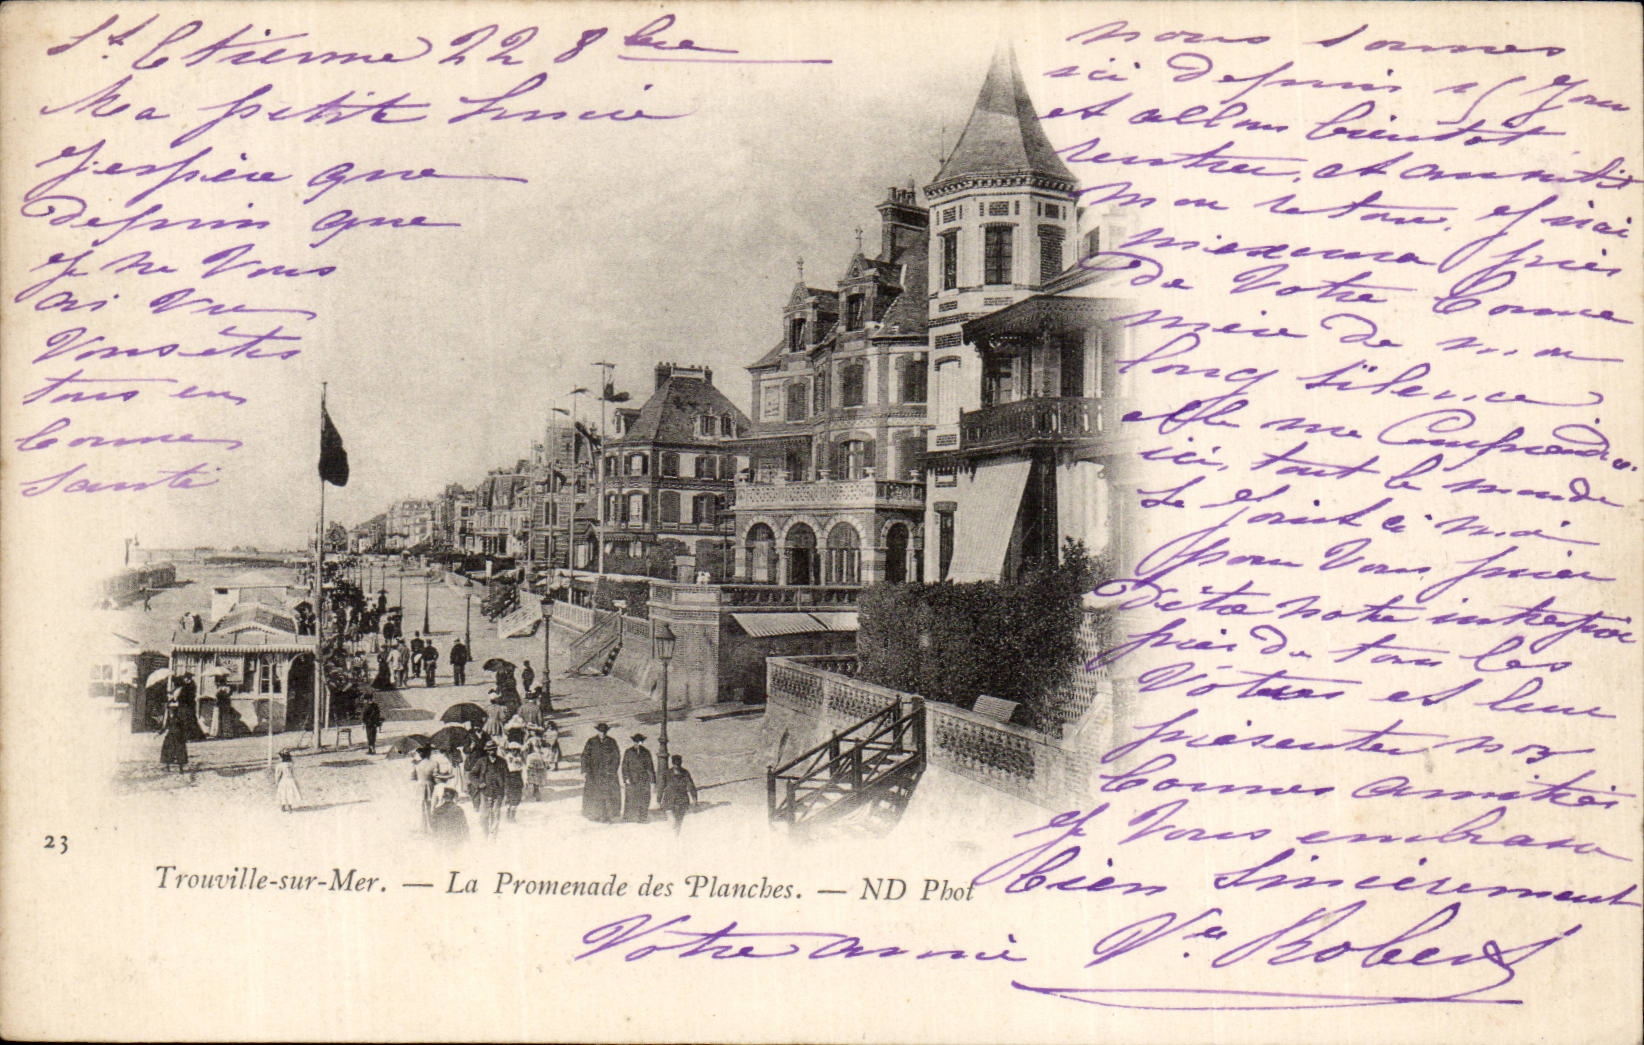 St Etienne 22 8bre
Ma petite Lucie
j'espère que
depuis que
je ne vous
ai vue
vous êtes
tous en
bonne
santé
nous sommes
ici depuis 15 jours
et allons bientôt
rentrer, et aussitôt
mon retour, j'irai
près
de votre bonne
mère de mon
long silence
elle me comprendra.
ici, tout le monde
se joint à moi
pour vous prier
d'être notre interprète
près de tous les
vôtres et leur
présenter nos
bonnes amitiés
je vous embrasse
bien sincèrement
Votre amie Ve Robert
23
Trouville-sur-Mer. — La Promenade des Planches. — ND Phot